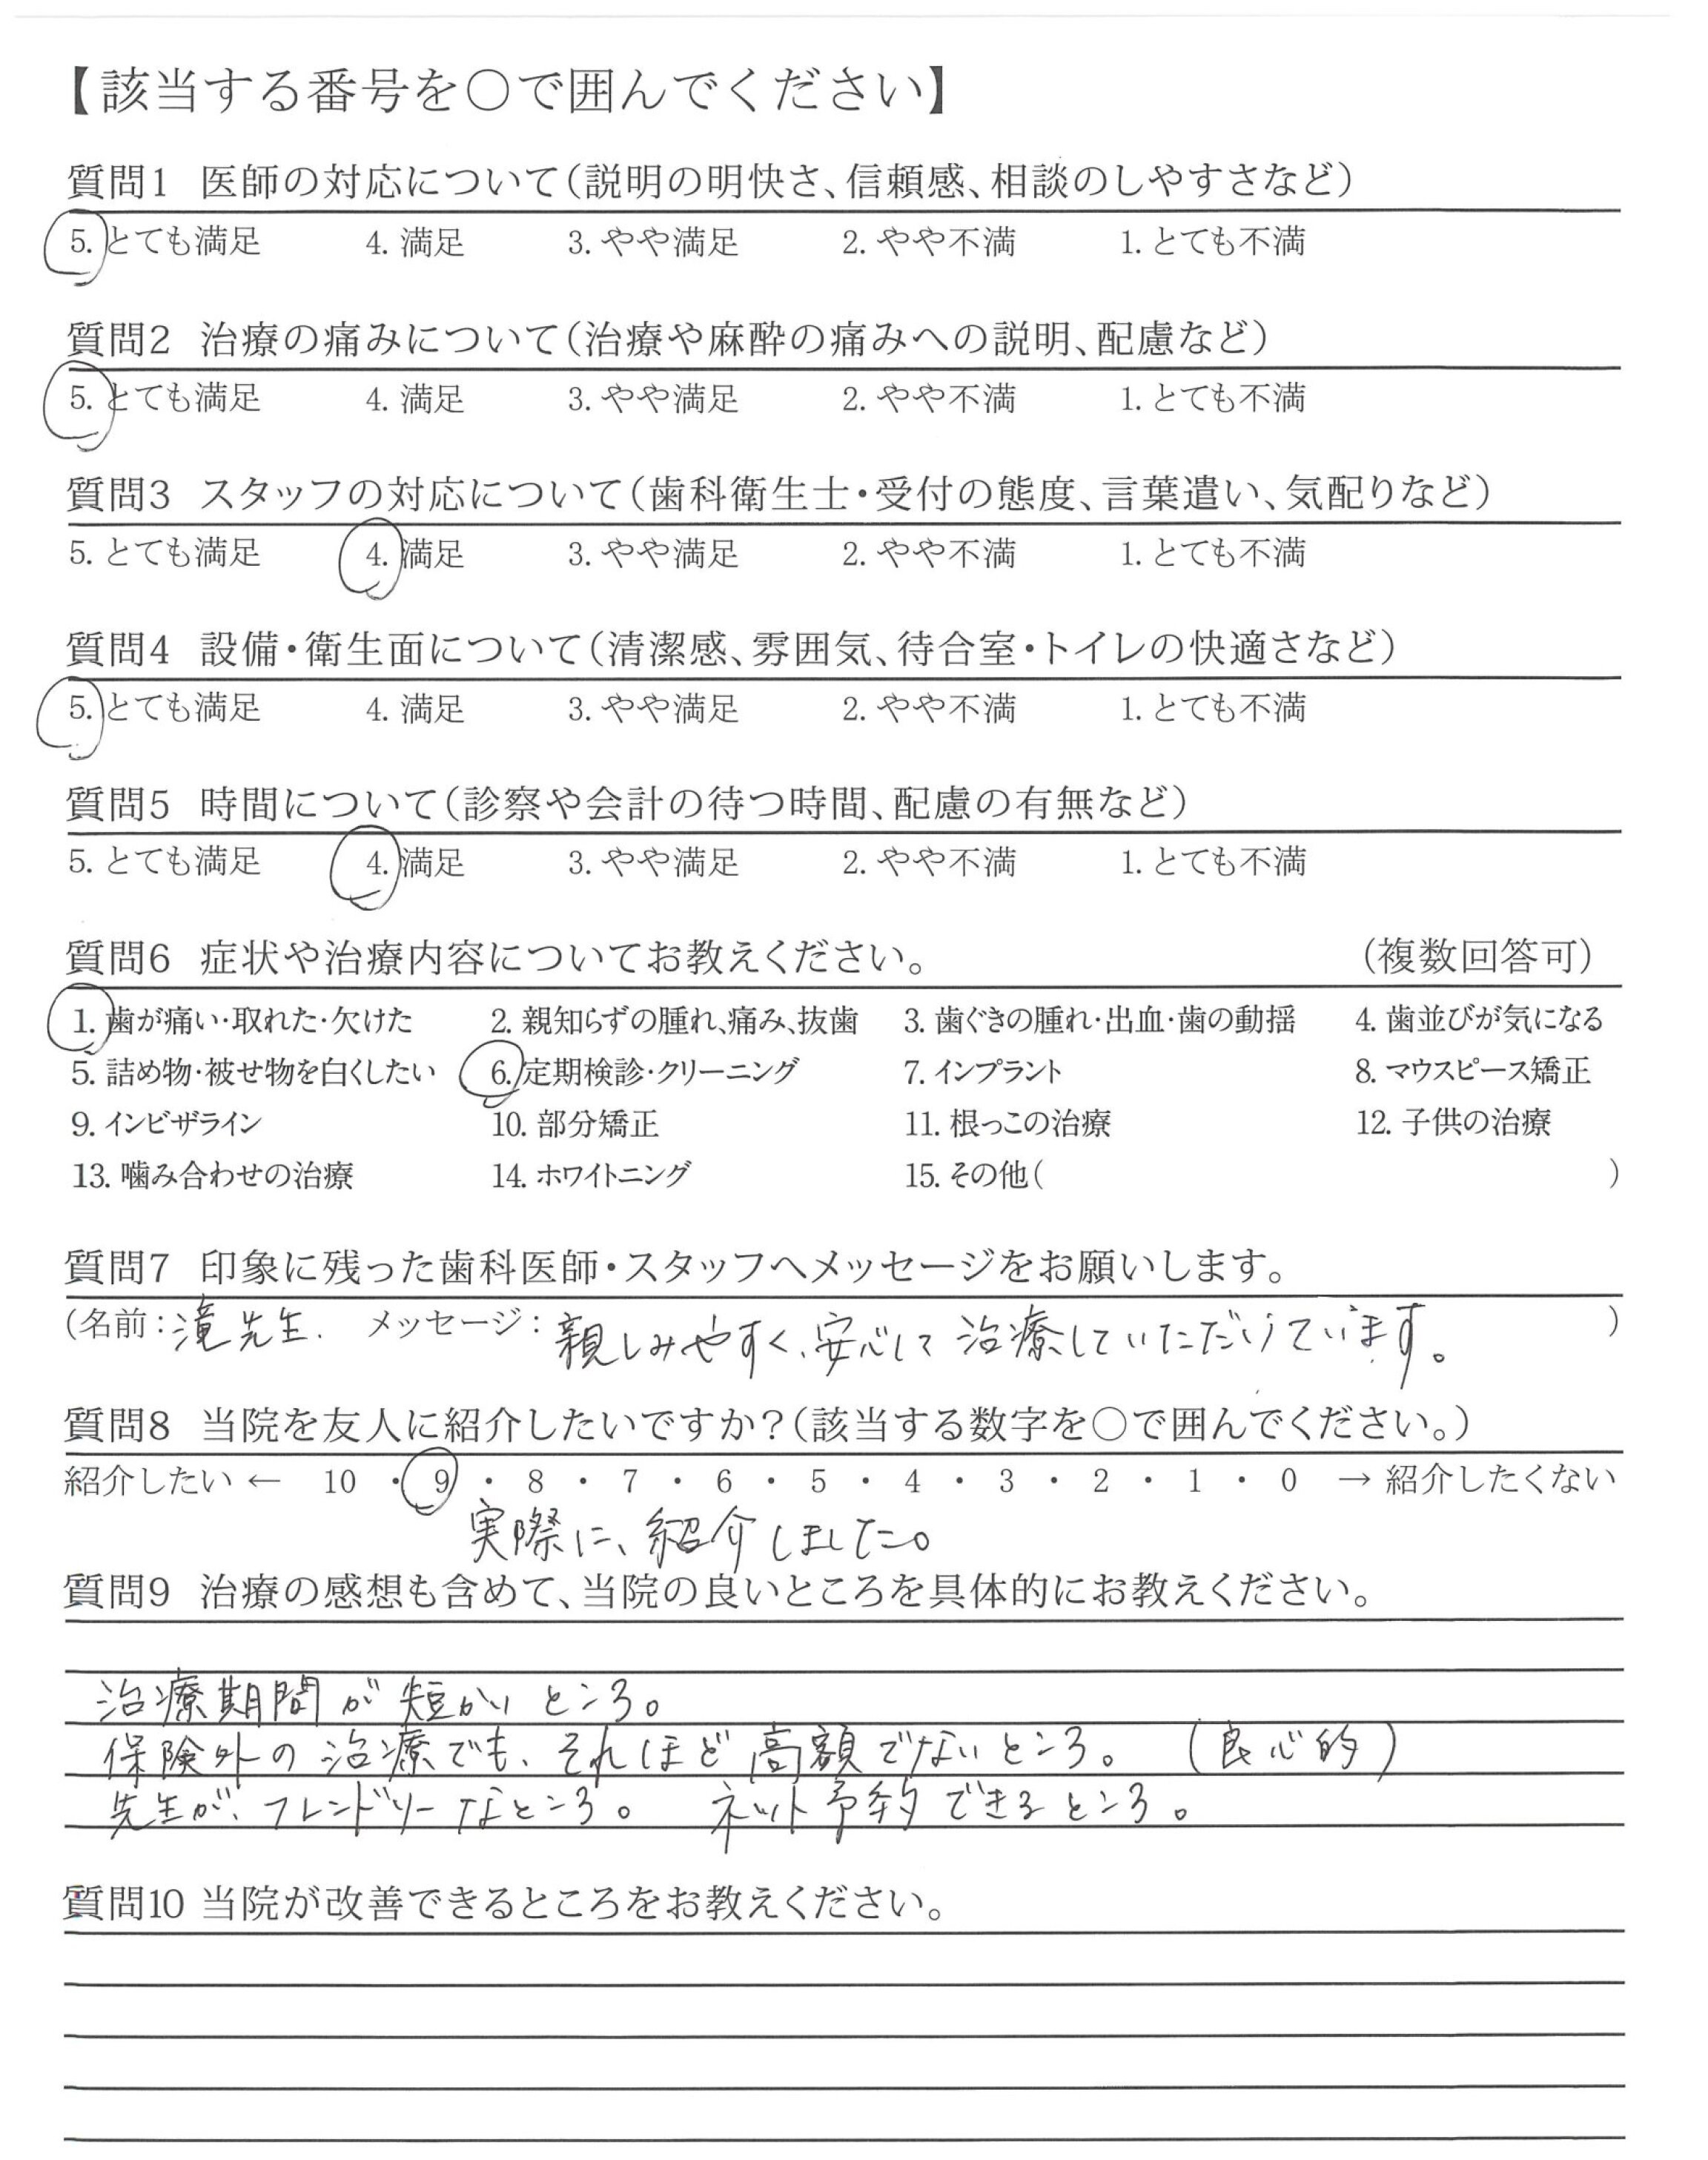 【該当する番号を○で囲んでください】
質問1 医師の対応について(説明の明快さ、信頼感、相談のしやすさなど)
5. とても満足 4. 満足 3. やや満足 2. やや不満 1. とても不満
質問2 治療の痛みについて(治療や麻酔の痛みへの説明、配慮など)
5. とても満足 4. 満足 3. やや満足 2. やや不満 1. とても不満
質問3 スタッフの対応について(歯科衛生士・受付の態度、言葉遣い、気配りなど)
5. とても満足 4. 満足 3. やや満足 2. やや不満 1. とても不満
質問4 設備・衛生面について(清潔感、雰囲気、待合室・トイレの快適さなど)
5. とても満足 4. 満足 3. やや満足 2. やや不満 1. とても不満
質問5 時間について(診察や会計の待つ時間、配慮の有無など)
5. とても満足 4. 満足 3. やや満足 2. やや不満 1. とても不満
質問6 症状や治療内容についてお教えください。 (複数回答可)
1. 歯が痛い・取れた・欠けた 2. 親知らずの腫れ、痛み、抜歯 3. 歯ぐきの腫れ・出血・歯の動揺 4. 歯並びが気になる
5. 詰め物・被せ物を白くしたい 6. 定期検診・クリーニング 7. インプラント 8. マウスピース矯正
9. インビザライン 10. 部分矯正 11. 根っこの治療 12. 子供の治療
13. 噛み合わせの治療 14. ホワイトニング 15. その他( )
質問7 印象に残った歯科医師・スタッフへメッセージをお願いします。
(名前：滝先生. メッセージ：親しみやすく、安心して治療していただけています。 )
質問8 当院を友人に紹介したいですか？(該当する数字を○で囲んでください。)
紹介したい ← 10 ・ 9 ・ 8 ・ 7 ・ 6 ・ 5 ・ 4 ・ 3 ・ 2 ・ 1 ・ 0 → 紹介したくない
実際に、紹介しました。
質問9 治療の感想も含めて、当院の良いところを具体的にお教えください。
治療期間が短かいところ。
保険外の治療でも、それほど高額でないところ。 (良心的)
先生が、フレンドリーなところ。 ネット予約できるところ。
質問10 当院が改善できるところをお教えください。